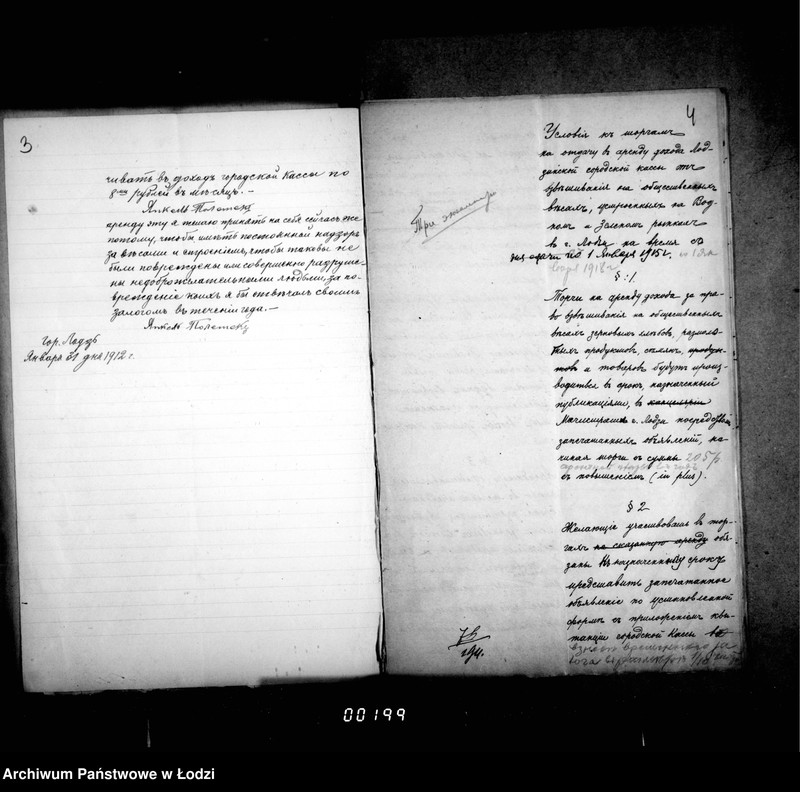 3
чивать въ доходъ городской Кассы по
рублей въ мѣсяцъ. —
Янкель
аренду эту я тотчасъ принять на себя сейчасъ же
потому, чтобы имѣть постоянный надзоръ
за вѣсами и строеніемъ, чтобы таковы не
были повреждены или совершенно разруше-
ны недоброжелательными людьми, за по-
врежденіе коихъ я бы отвѣчалъ своимъ
залогомъ въ теченіи года. —
Янкель
гор. Лодзь
Января 31 дня 1912 г.
4
Условія къ торгамъ
на отдачу въ аренду дохода Лод-
зинской городской кассы отъ
взвѣшиванія на общественныхъ
вѣсахъ, устроенныхъ на Вод-
номъ и Зеленомъ рынкахъ
въ г. Лодзи на время съ
дня сдачи по 1 Января 1915 г.
1918 г.
§ 1.
Торги на аренду дохода за пра-
во взвѣшиванія на общественныхъ
вѣсахъ зерновыхъ хлѣбовъ, размоло-
тыхъ продуктовъ, продук-
товъ и товаровъ будутъ произ-
водиться въ срокъ, назначенный
публикаціями, въ канцеляріи
Магистрата г. Лодзи посредствомъ
запечатанныхъ объявленій, на-
чиная торги съ суммы 205 р
съ повышеніемъ (in plus).
§ 2
Желающіе участвовать въ тор-
гахъ на сказанную аренду обя-
заны къ назначенному сроку
представить запечатанное
объявленіе по установленной
формѣ съ приложеніемъ кви-
танціи городской Кассы въ
взносѣ временнаго за-
лога въ размѣрѣ 1/10
Три
00199
Archiwum Państwowe w Łodzi